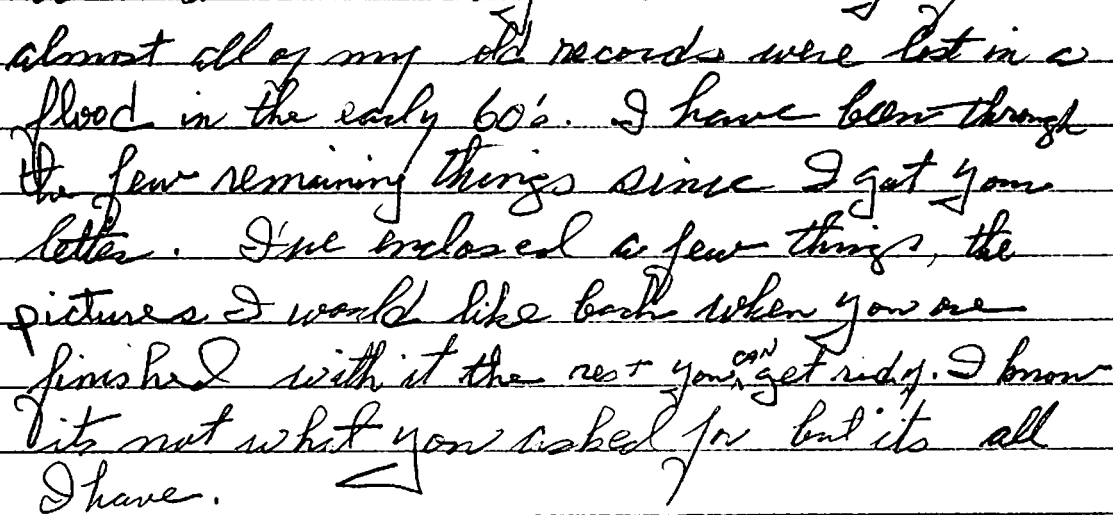 almost all of my old records were lost in a
flood in the early 60's. I have been through
the few remaining things since I got your
letter. I've enclosed a few things, the
pictures I would like back when you are
finished with it the rest you CAN get rid of. I know
its not what you asked for but its all
I have.